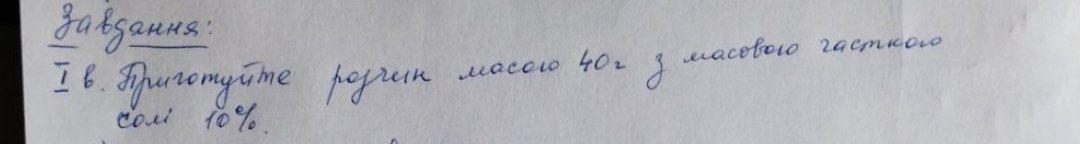 Завдання:
I в. Приготуйте розчин масою 40г з масовою часткою
солі 10%.